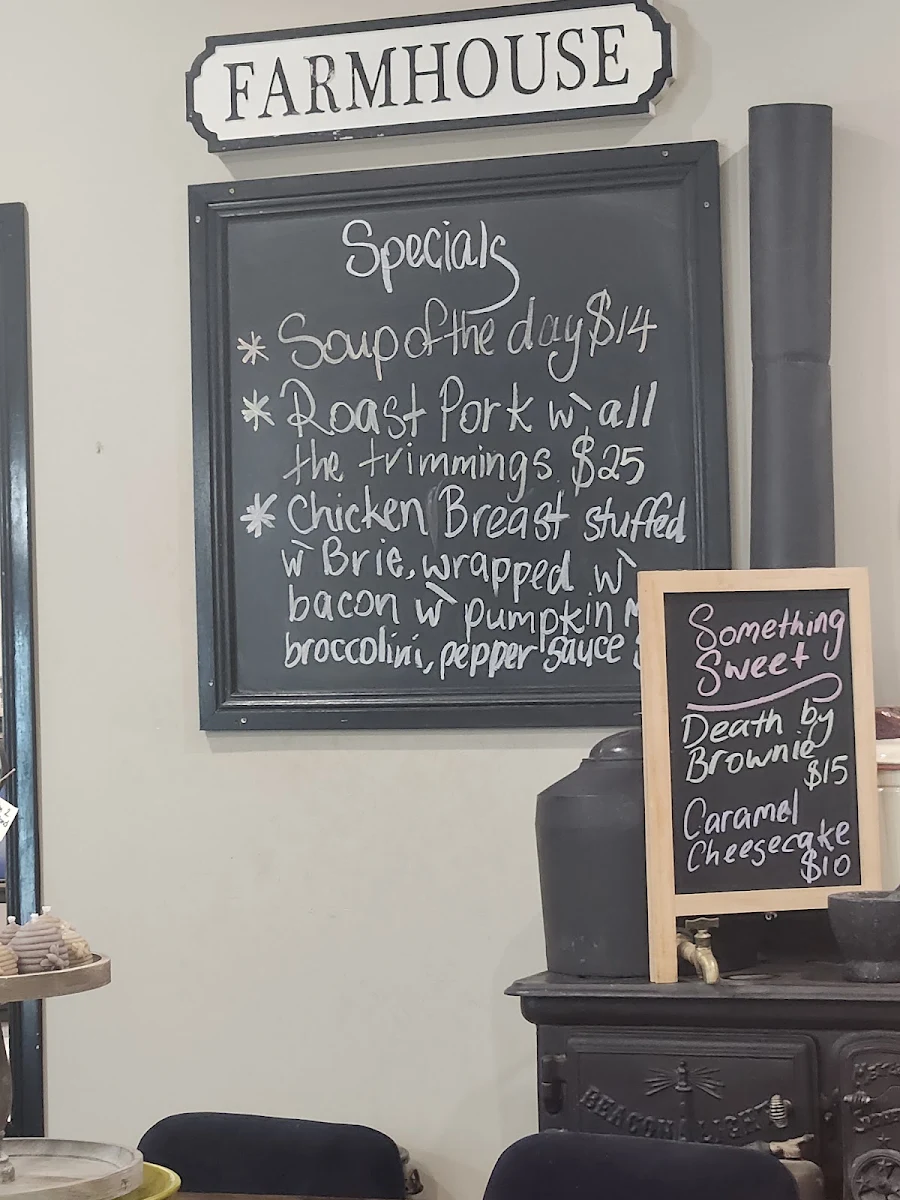 FARMHOUSE
Specials
* Soup of the day $14
* Roast Pork w` all
the trimmings $25
* Chicken Breast stuffed
w` Brie, wrapped w`
bacon w` pumpkin
broccolini, pepper sauce
Something
Sweet
Death by
Brownie
$15
Caramel
Cheesecake
$10
BEACON LIGHT